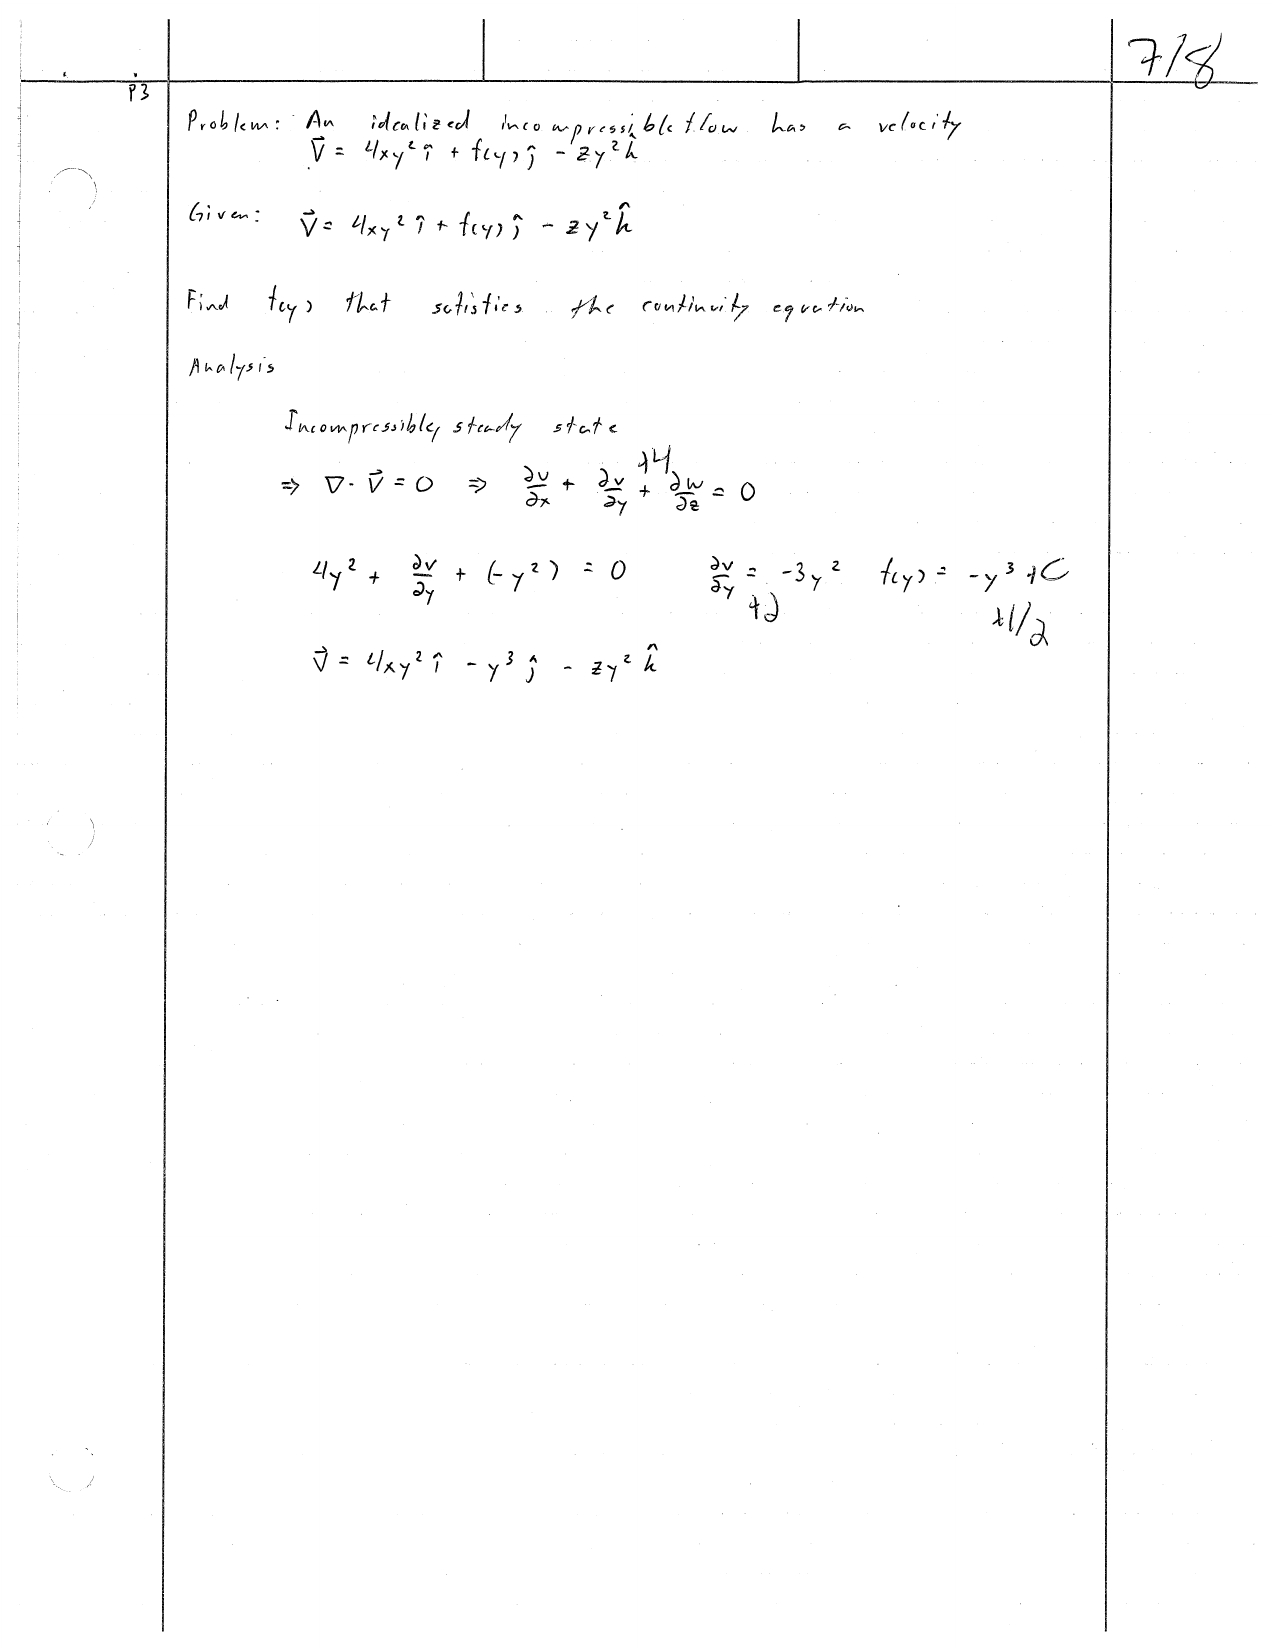 7/8
P3
Problem: An idealized incompressible flow has a velocity
V⃗ = 4xy² î + f(y) ĵ - zy² k̂
Given: V⃗ = 4xy² î + f(y) ĵ - zy² k̂
Find f(y) that satisfies the continuity equation
Analysis
Incompressible, steady state
+4
⇒ ∇· V⃗ = 0 ⇒ ∂u/∂x + ∂v/∂y + ∂w/∂z = 0
4y² + ∂v/∂y + (-y²) = 0 ∂v/∂y = -3y² f(y) = -y³ + C
+2 +1/2
V⃗ = 4xy² î - y³ ĵ - zy² k̂